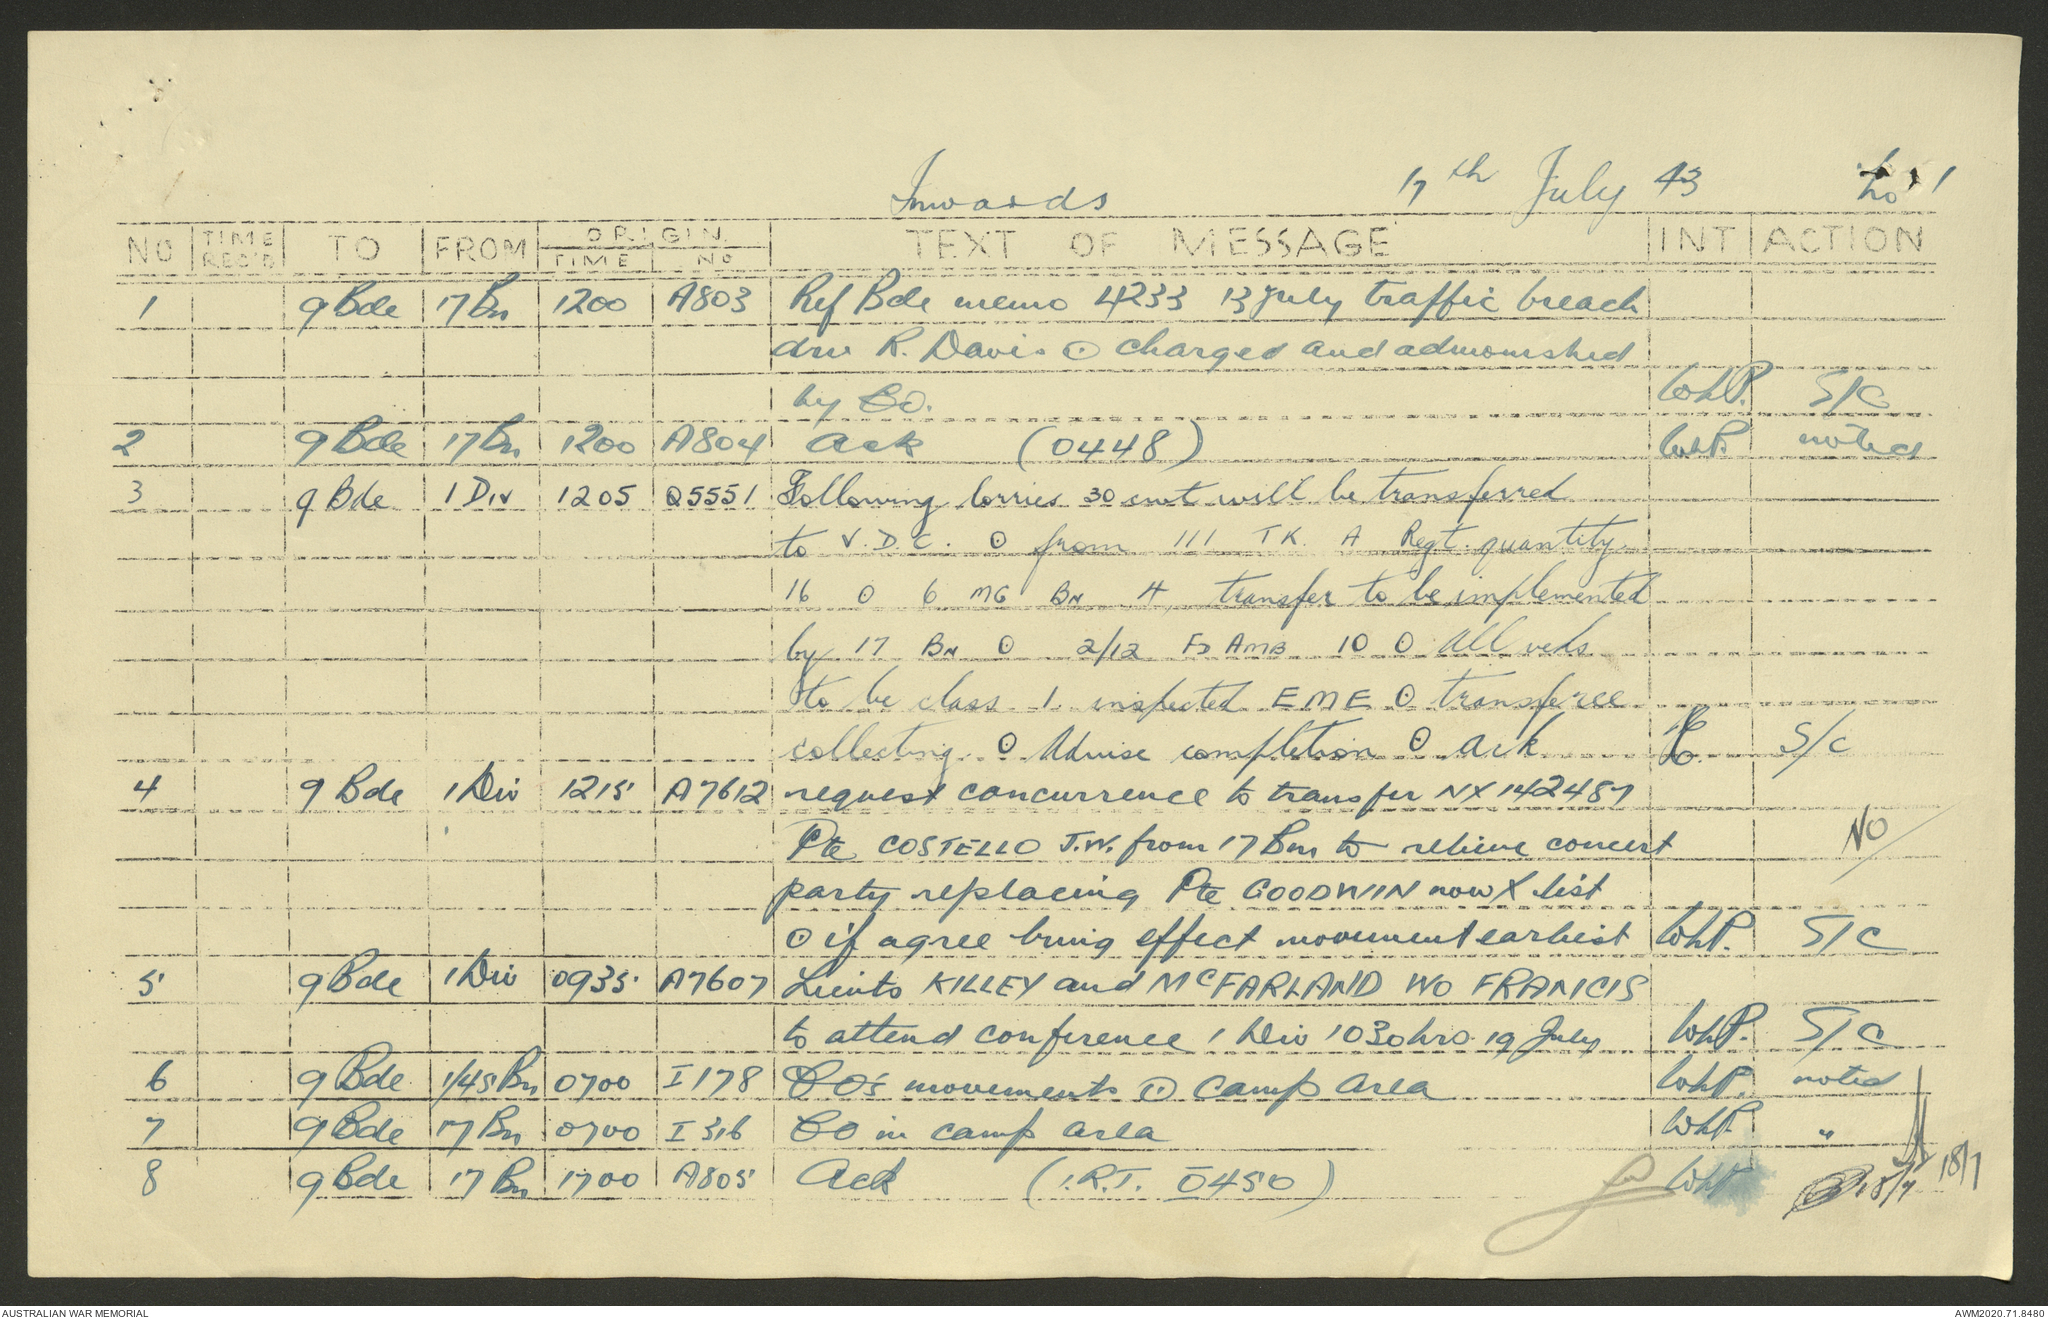 Inwards 17th July 43 No 1
NO TIME REC'D TO FROM ORIGIN TIME NO TEXT OF MESSAGE INT ACTION
1 9 Bde 17 Bn 1200 A803 Ref Bde memo 4233 13 July traffic breach
drv R. Davis ⊙ charged and admonished
by CO. WhP. S/C
2 9 Bde 17 Bn 1200 A804 Ack (0448) WhP. noted
3 9 Bde 1 Div 1205 Q5551 Following lorries 30 cwt will be transferred
to V.D.C. ⊙ from 111 TK A Regt. quantity
16 ⊙ 6 MG BN 4, transfer to be implemented
by 17 BN ⊙ 2/12 FD AMB 10 ⊙ All vehs
to be class 1. inspected EME ⊙ transferee
collecting. ⊙ Advise completion ⊙ Ack S/C
4 9 Bde 1 Div 1215 A7612 request concurrence to transfer NX142487
Pte COSTELLO J.W. from 17 Bn to relieve concert NO
party replacing Pte GOODWIN now X list
⊙ if agree bring effect movement earliest WhP. S/C
5 9 Bde 1 Div 0935 A7607 Lieuts KILLEY and McFARLAND WO FRANCIS
to attend conference 1 Div 1030 hrs 19 July WhP. S/C
6 9 Bde 1/45 Bn 0700 I178 CO's movements ⊙ Camp Area WhP. noted
7 9 Bde 17 Bn 0700 I 316 CO in camp area WhP. "
8 9 Bde 17 Bn 1700 A805 Ack (I.R.T. 0450) WhP 18/7 18/7
AUSTRALIAN WAR MEMORIAL AWM2020.71.8480